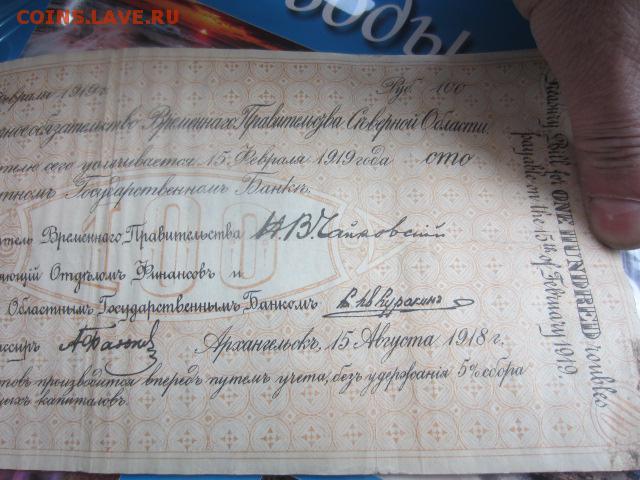 COINS.LAVE.RU
воды!
Февраля 1919г. Руб. 100
ное обязательство Временнаго Правительства Сѣверной Области
телю сего уплачивается 15 Февраля 1919 года сто
тномъ Государственномъ Банкѣ.
100
тель Временнаго Правительства Н.В.Чайковскій
яющій Отдѣломъ Финансовъ и
Областнымъ Государственнымъ Банкомъ Куракинъ
ссиръ
Архангельскъ, 15 Августа 1918 г.
товъ производится впередъ путемъ учета, безъ удержанія 5% сбора
ныхъ капиталовъ.
Treasury Bill for ONE HUNDRED roubles
payable on the 15th of February 1919.